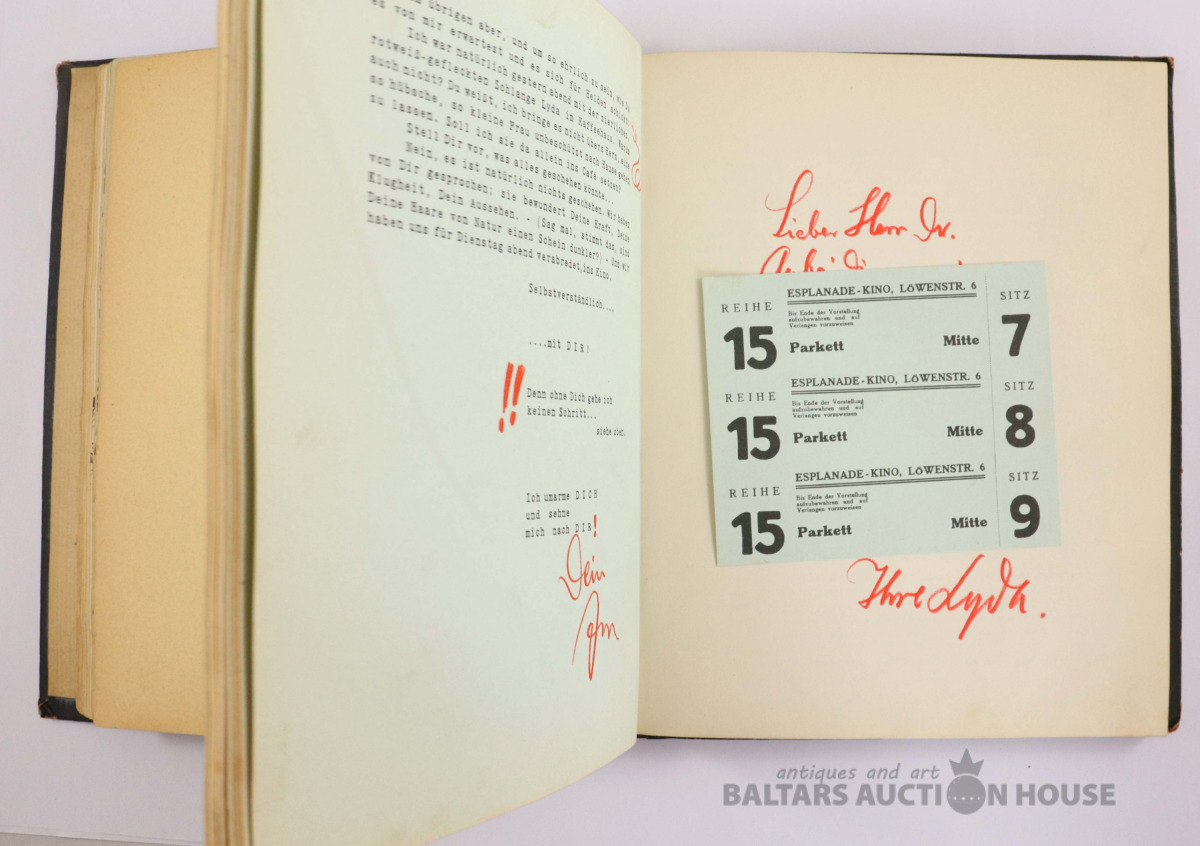 übrigen aber, und um so ehrlich zu sein, wie Du
es von mir erwartest und es sich für Helden schickt:
Ich war natürlich gestern abend mit der zierlichen,
rotweiß-gefleckten Schlange Lyda im Kaffeehaus. Warum
auch nicht? Du weißt, ich bringe es nicht übers Herz, eine
so hübsche, so kleine Frau unbeschützt nach Hause gehen
zu lassen. Soll ich sie da allein ins Café setzen?
Stell Dir vor, was alles geschehen könnte...
Nein, es ist natürlich nichts geschehen. Wir haben
von Dir gesprochen; sie bewundert Deine Kraft, Deine
Klugheit, Dein Aussehen. - (Sag mal, stimmt das, sind
Deine Haare von Natur einen Schein dunkler?) - Und wir
haben uns für Dienstag abend verabredet, ins Kino.
Selbstverständlich....
....mit DIR!
!!
Denn ohne Dich gehe ich
keinen Schritt...
siehe oben.
Ich umarme DICH
und sehne
mich nach DIR!
Dein
Lieber Herr Dr.
REIHE
15
ESPLANADE-KINO, LÖWENSTR. 6
Bis Ende der Vorstellung
aufzubewahren und auf
Verlangen vorzuweisen
Parkett
Mitte
SITZ
7
REIHE
15
ESPLANADE-KINO, LÖWENSTR. 6
Bis Ende der Vorstellung
aufzubewahren und auf
Verlangen vorzuweisen
Parkett
Mitte
SITZ
8
REIHE
15
ESPLANADE-KINO, LÖWENSTR. 6
Bis Ende der Vorstellung
aufzubewahren und auf
Verlangen vorzuweisen
Parkett
Mitte
SITZ
9
Ihre Lyda.
antiques and art
BALTARS AUCTION HOUSE